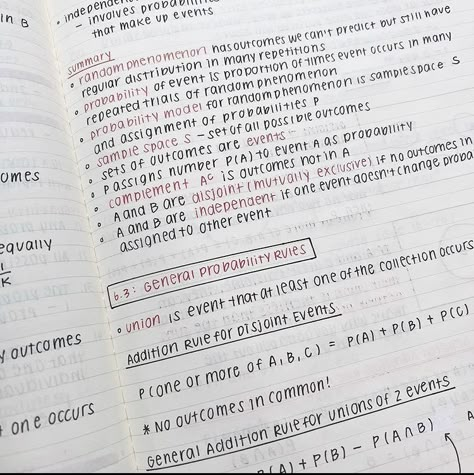 in B
omes
equally
1
K
outcomes
one occurs
• independen
- involves probabili
that make up events
summary
• random phenomenon has outcomes we can't predict but still have
regular distribution in many repetitions
• probability of event is proportion of times event occurs in many
repeated trials of random phenomenon
• probability model for random phenomenon is sample space S
and assignment of probabilities P
• sample space S - set of all possible outcomes
• sets of outcomes are events
• P assigns number P(A) to event A as probability
• complement Aᶜ is outcomes not in A
• A and B are disjoint (mutually exclusive) if no outcomes in
• A and B are independent if one event doesn't change proba
assigned to other event
6.3: General Probability Rules
• union is event that at least one of the collection occurs
Addition Rule for Disjoint Events
P(one or more of A, B, C) = P(A) + P(B) + P(C)
* No outcomes in common!
General Addition Rule for unions of 2 events
P(A) + P(B) - P(A∩B)